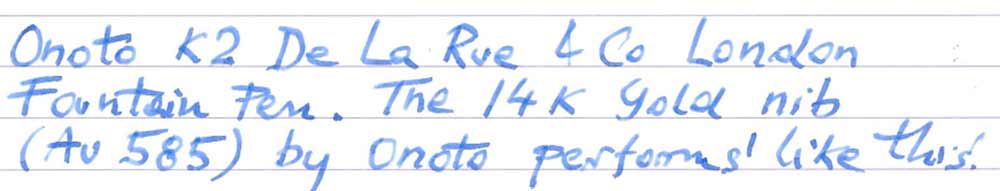 Onoto K2 De La Rue & Co London
Fountain Pen. The 14K gold nib
(Au 585) by Onoto performs like this!